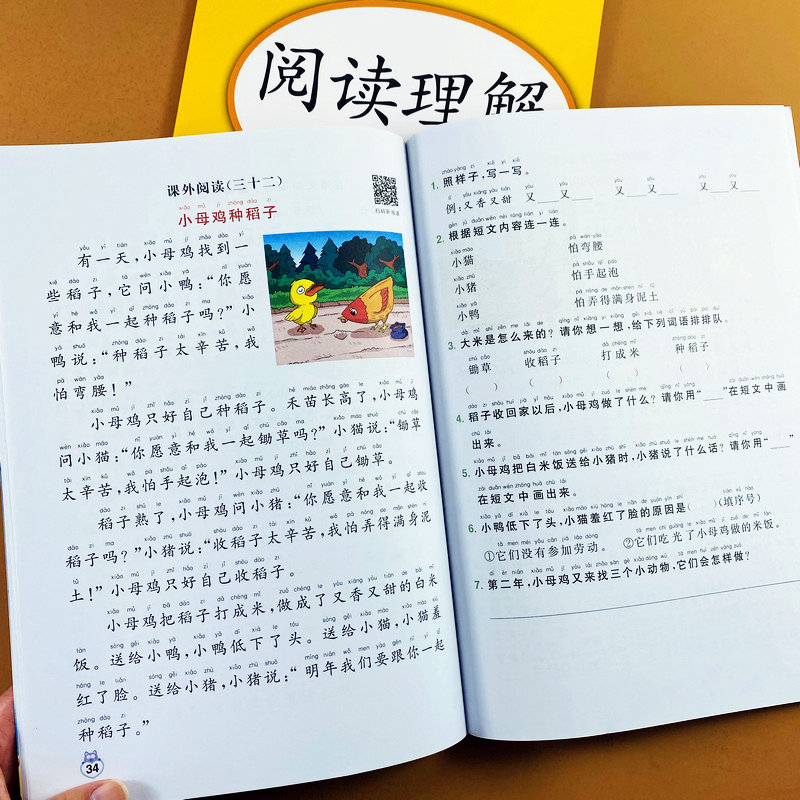 阅读理解
课外阅读(三十二)
扫码听阅读
小母鸡种稻子
有一天,小母鸡找到一
些稻子,它问小鸭:“你愿
意和我一起种稻子吗?”小
鸭说:“种稻子太辛苦,我
怕弯腰!”
小母鸡只好自己种稻子。禾苗长高了,小母鸡
问小猫:“你愿意和我一起锄草吗?”小猫说:“锄草
太辛苦,我怕手起泡!”小母鸡只好自己锄草。
稻子熟了,小母鸡问小猪:“你愿意和我一起收
稻子吗?”小猪说:“收稻子太辛苦,我怕弄得满身泥
土!”小母鸡只好自己收稻子。
小母鸡把稻子打成米,做成了又香又甜的白米
饭。送给小鸭,小鸭低下了头。送给小猫,小猫羞
红了脸。送给小猪,小猪说:“明年我们要跟你一起
种稻子。”
34
1.照样子,写一写。
例:又香又甜 又__又__ 又__又__
2.根据短文内容连一连。
小猫 怕弯腰
小猪 怕手起泡
小鸭 怕弄得满身泥土
3.大米是怎么来的?请你想一想,给下列词语排排队。
锄草 收稻子 打成米 种稻子
( ) ( ) ( ) ( )
4.稻子收回家以后,小母鸡做了什么?请你用“__”在短文中画
出来。
5.小母鸡把白米饭送给小猪时,小猪说了什么话?请你用“﹏﹏”
在短文中画出来。
6.小鸭低下了头,小猫羞红了脸的原因是( )(填序号)
①它们没有参加劳动。 ②它们吃光了小母鸡做的米饭。
7.第二年,小母鸡又来找三个小动物,它们会怎样做?